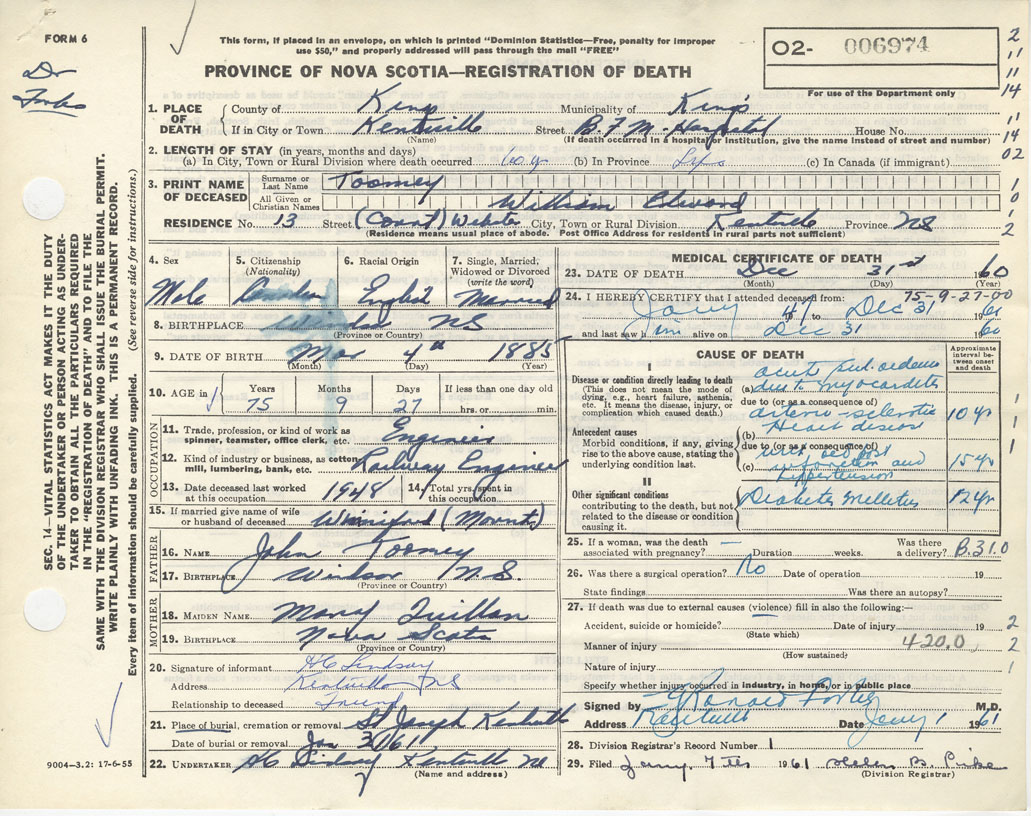 FORM 6
Dr
Forbes
This form, if placed in an envelope, on which is printed "Dominion Statistics—Free, penalty for improper
use $50," and properly addressed will pass through the mail "FREE"
PROVINCE OF NOVA SCOTIA—REGISTRATION OF DEATH
O2- 006974
For use of the Department only
2
11
11
14
11
14
02
1
0
1
2
1. PLACE OF DEATH County of Kings Municipality of Kings
If in City or Town Kentville Street B.F.M. Hospital House No.
(Name) (If death occurred in a hospital or institution, give the name instead of street and number)
2. LENGTH OF STAY (in years, months and days)
(a) In City, Town or Rural Division where death occurred 60 y (b) In Province (c) In Canada (if immigrant)
3. PRINT NAME OF DECEASED Surname or Last Name Toomey
All Given or Christian Names William Edward
RESIDENCE No. 13 Street (Court) Webster City, Town or Rural Division Kentville Province NS
(Residence means usual place of abode. Post Office Address for residents in rural parts not sufficient)
4. Sex 5. Citizenship (Nationality) 6. Racial Origin 7. Single, Married, Widowed or Divorced (write the word)
Male Canadian English Married
8. BIRTHPLACE Windsor NS
(Province or Country)
9. DATE OF BIRTH Mar 4th 1885
(Month) (Day) (Year)
10. AGE in Years Months Days If less than one day old
75 9 27 hrs. or min.
OCCUPATION
11. Trade, profession, or kind of work as spinner, teamster, office clerk, etc. Engineer
12. Kind of industry or business, as cotton mill, lumbering, bank, etc. Railway Engineer
13. Date deceased last worked at this occupation 1948 14. Total yrs. spent in this occupation
15. If married give name of wife or husband of deceased Winnifred (Mount)
FATHER
16. NAME John Toomey
17. BIRTHPLACE Windsor N.S.
(Province or Country)
MOTHER
18. MAIDEN NAME Mary Quillan
19. BIRTHPLACE Nova Scota
(Province or Country)
20. Signature of informant HC Lindsay
Address Kentville NS
Relationship to deceased Friend
21. Place of burial, cremation or removal St Joseph Kentville
Date of burial or removal Jan 3 1961
22. UNDERTAKER HC Lindsay Kentville NS
(Name and address)
MEDICAL CERTIFICATE OF DEATH
23. DATE OF DEATH Dec 31st 1960
(Month) (Day)
75-9-27-00
24. I HEREBY CERTIFY that I attended deceased from:
Jany 47 to Dec 31 1960
and last saw him alive on Dec 31 1960
CAUSE OF DEATH
Approximate interval between onset and death
I
Disease or condition directly leading to death
(This does not mean the mode of dying, e.g., heart failure, asthenia, etc. It means the disease, injury, or complication which caused death.)
(a) acute pul. oedema
due to myocarditis
due to (or as a consequence of)
Antecedent causes
Morbid conditions, if any, giving rise to the above cause, stating the underlying condition last.
(b) arterio-sclerotic Heart disease 10 yr
due to (or as a consequence of)
(c) infarction and hypertension 15 yr
II
Other significant conditions contributing to the death, but not related to the disease or condition causing it.
Diabetes Mellitus 12 yr
1
1
1
25. If a woman, was the death associated with pregnancy? — Duration weeks. Was there a delivery? B.31.0
26. Was there a surgical operation? No Date of operation 19
State findings Was there an autopsy?
27. If death was due to external causes (violence) fill in also the following:—
Accident, suicide or homicide? — Date of injury 19
(State which)
Manner of injury 420.0
(How sustained)
Nature of injury
Specify whether injury occurred in industry, in home, or in public place
2
2
1
Signed by J Ronald Forbes M.D.
Address Kentville Date Jany 1 1961
28. Division Registrar's Record Number 1
29. Filed Jany. 7th 1961 Helen B. Pirke
(Division Registrar)
SEC. 14—VITAL STATISTICS ACT MAKES IT THE DUTY
OF THE UNDERTAKER OR PERSON ACTING AS UNDER-
TAKER TO OBTAIN ALL THE PARTICULARS REQUIRED
IN THE "REGISTRATION OF DEATH" AND TO FILE THE
SAME WITH THE DIVISION REGISTRAR WHO SHALL ISSUE THE BURIAL PERMIT.
WRITE PLAINLY WITH UNFADING INK. THIS IS A PERMANENT RECORD.
Every item of information should be carefully supplied. (See reverse side for instructions.)
9004—3.2: 17-6-55